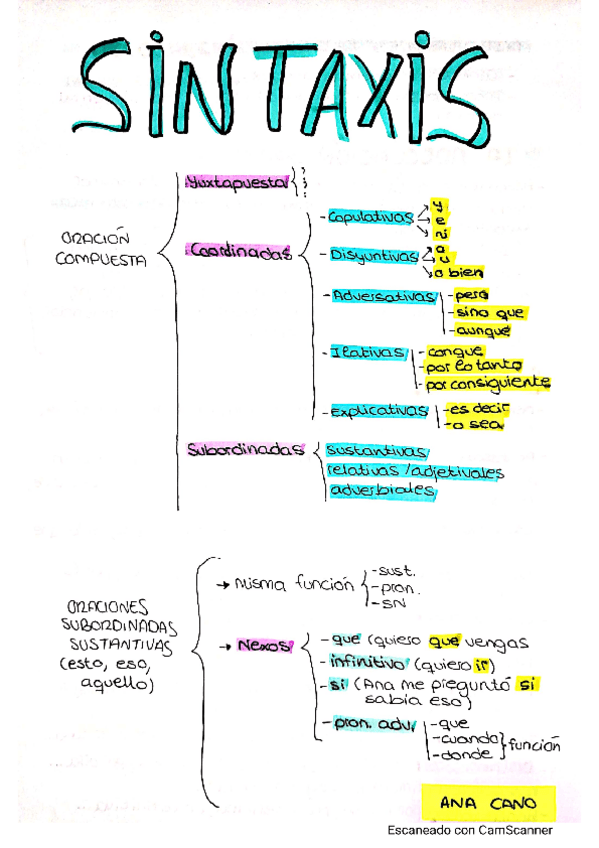 SINTAXIS
ORACIÓN
COMPUESTA
Yuxtapuesta { ; , :
Coordinadas
- Copulativas y
e
ni
- Disyuntivas o
u
o bien
- Adversativas - pero
- sino que
- aunque
- Ilativas - conque
- por lo tanto
- por consiguiente
- Explicativas - es decir
- o sea
Subordinadas
sustantivas
relativas / adjetivales
adverbiales
ORACIONES
SUBORDINADAS
SUSTANTIVAS
(esto, eso,
aquello)
→ misma función - sust.
- pron.
- SN
→ Nexos
- que (quiero que vengas
- infinitivo (quiero ir)
- si (Ana me preguntó si
sabía eso)
- pron. adv. - que
- cuando
- donde } función
ANA CANO
Escaneado con CamScanner